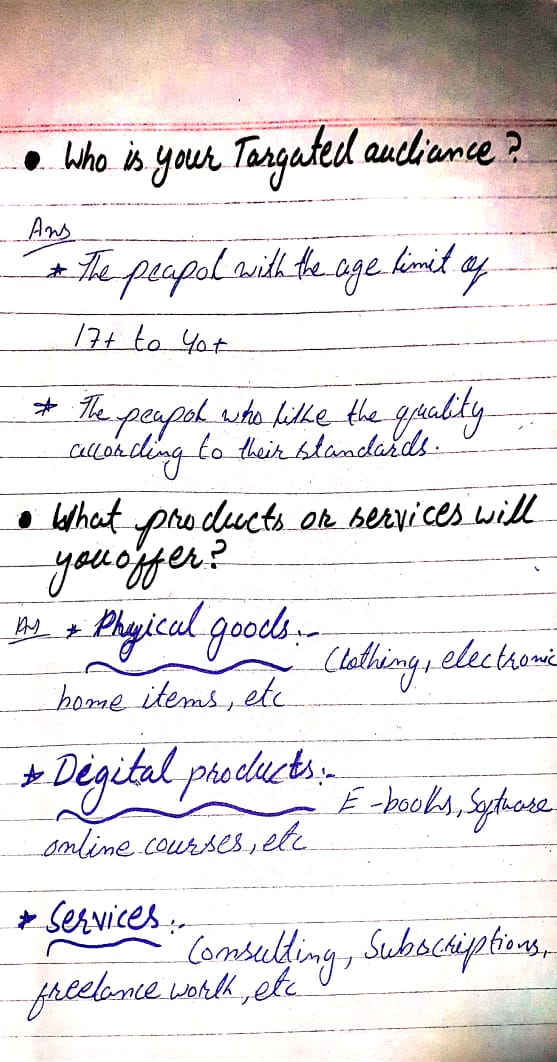 • Who is your Targated audiance?
Ans
* The peapol with the age limit of
17+ to 40+
* The peapol who likke the quality
according to their standards.
• What products or services will
you offer?
Ans * Phyical goods:-
Clothing, electronic
home items, etc
* Degital products:-
E-books, Software
online courses, etc
* Services:-
Consulting, Subscriptions,
freelance work, etc